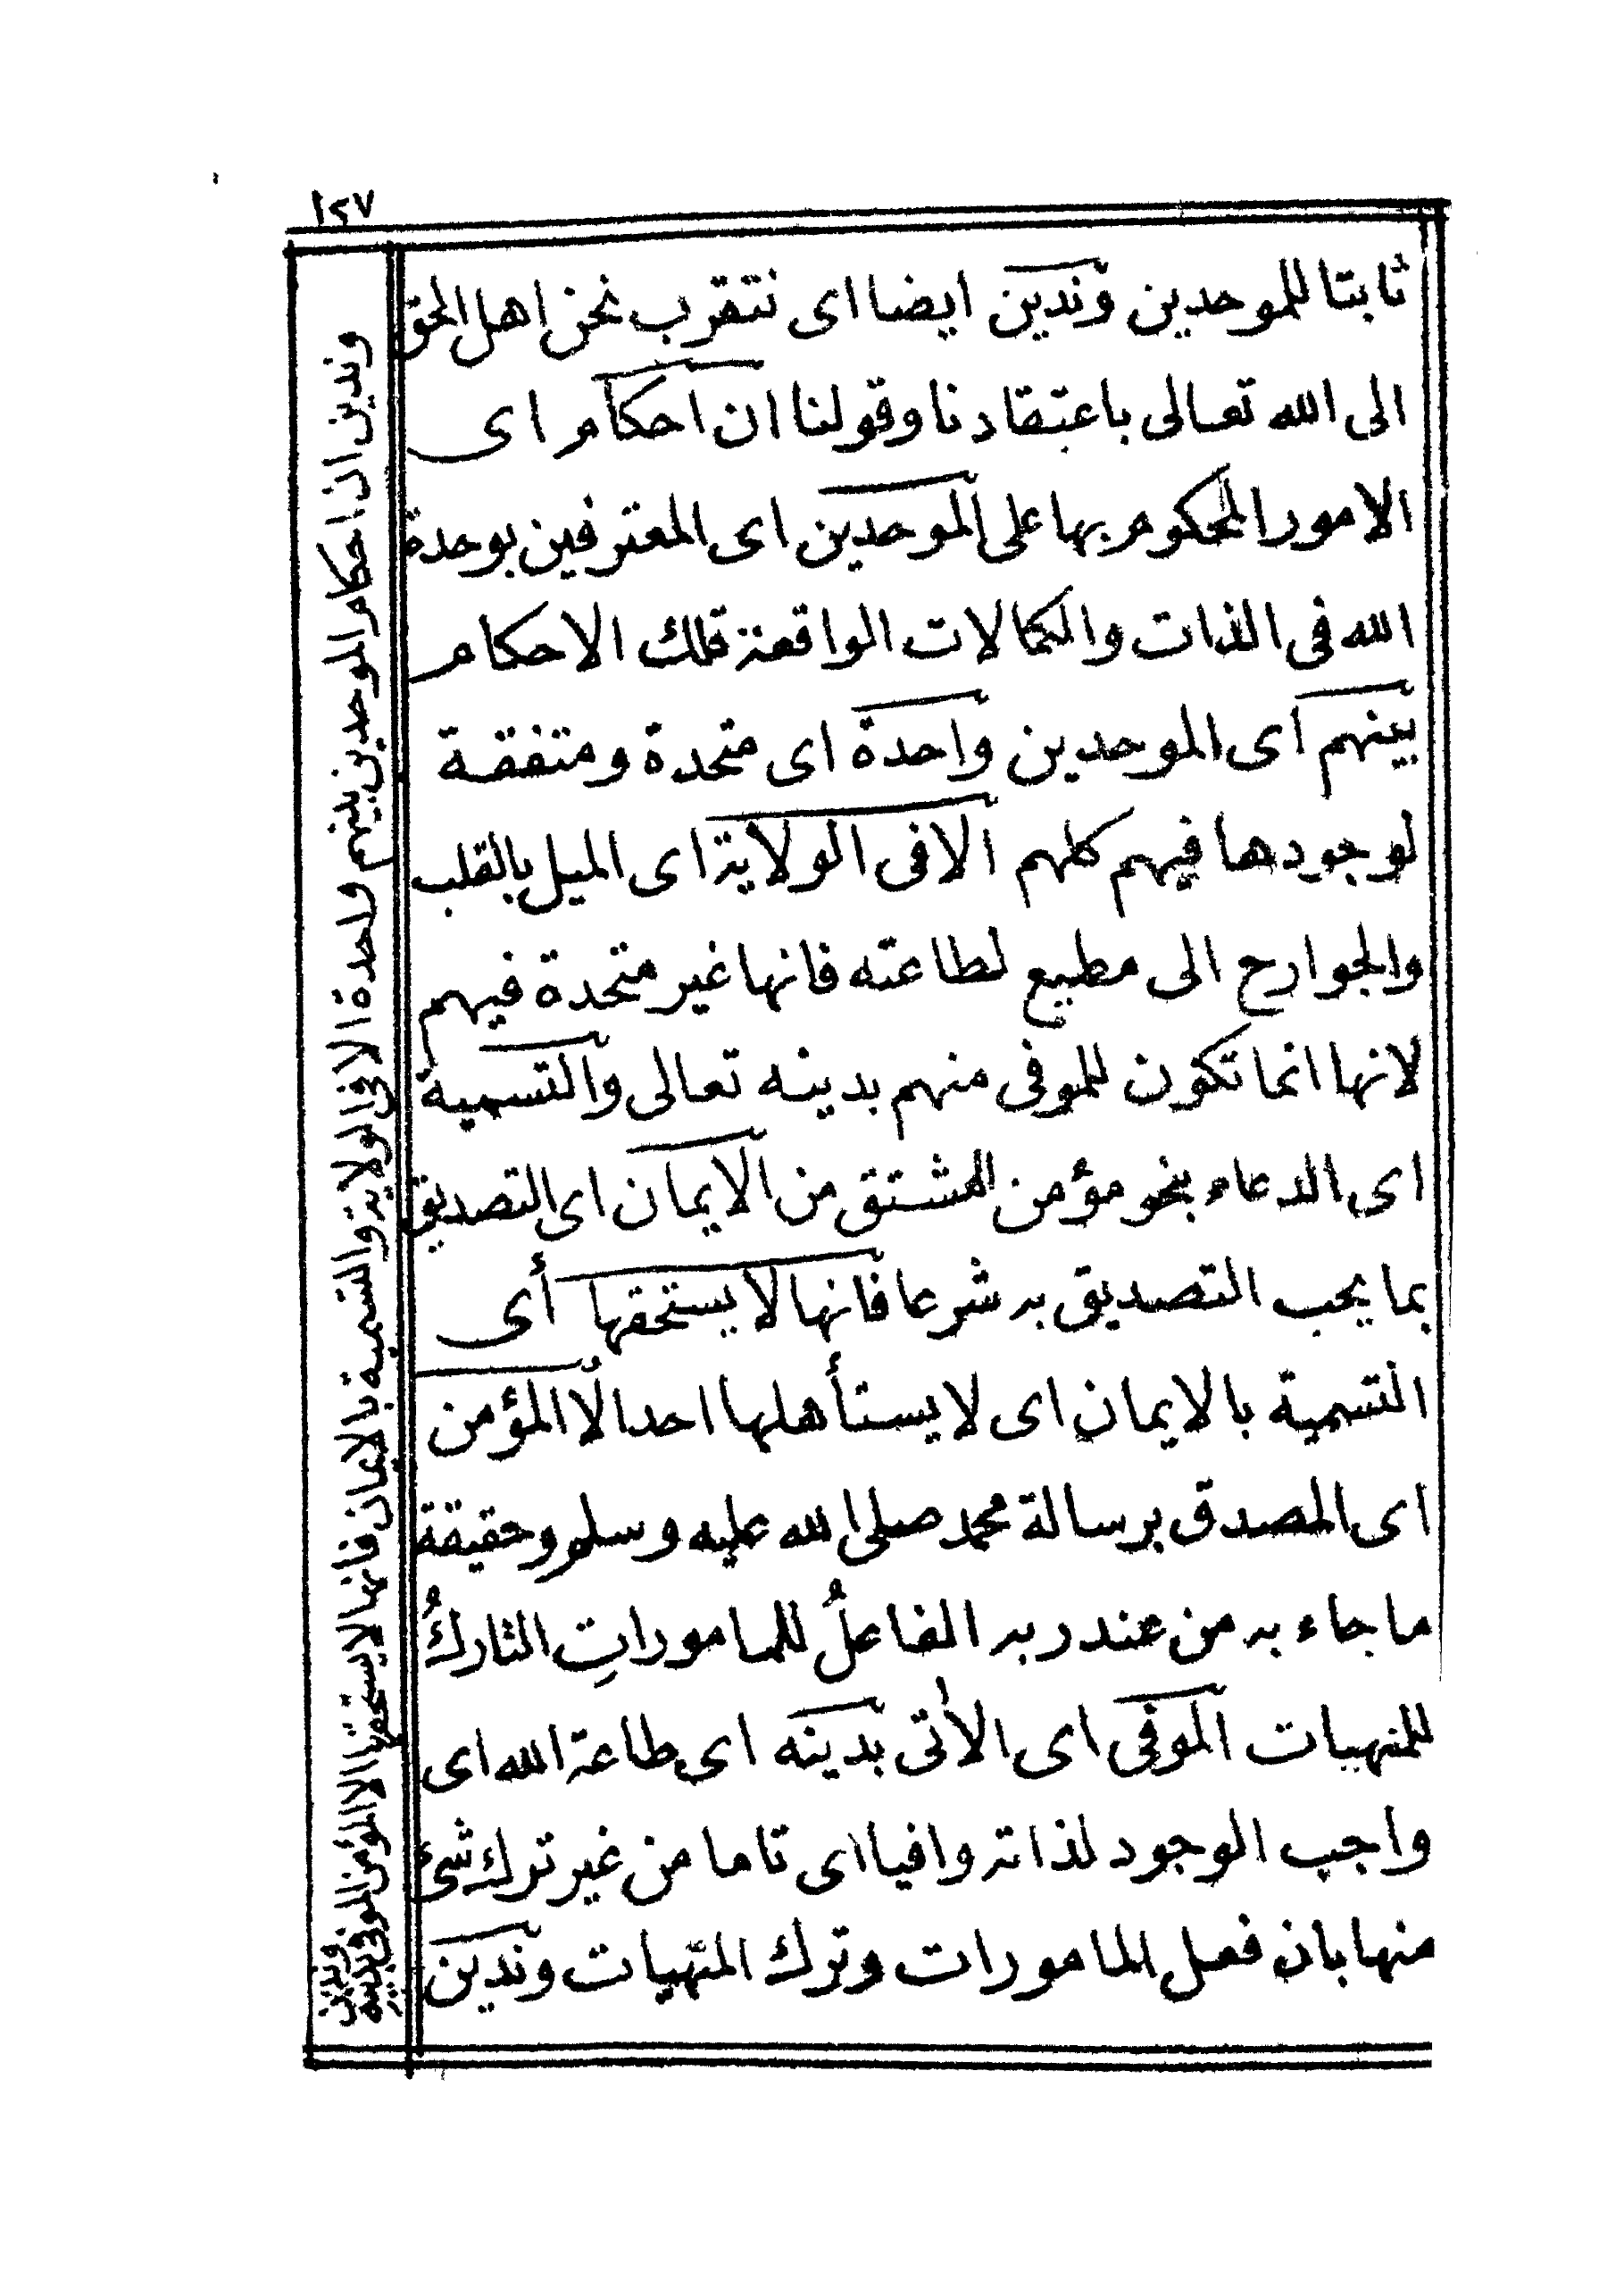 ١٢٧
ثابتا للموحدين وندين ايضا اى نتقرب نحن اهل الحق
الى الله تعالى باعتقادنا وقولنا ان احكام اى
الامور المحكوم بها على الموحدين اى المعترفين بوحدة
الله فى الذات والكمالات الواقعة تلك الاحكام
بينهم اى الموحدين واحدة اى متحدة ومتفقة
لوجودها فيهم كلهم الا فى الولاية اى الميل بالقلب
والجوارح الى مطيع لطاعته فانها غير متحدة فيهم
لانها انما تكون للموفى منهم بدينه تعالى والتسمية
اى الدعاء بنحو مؤمن المشتق من الايمان اى التصديق
بما يجب التصديق به شرعا فانها لا يستحقها أى
التسمية بالايمان اى لا يستأهلها احد الّا المؤمن
اى المصدق برسالة محمد صلى الله عليه وسلم وحقيقة
ما جاء به من عند ربه الفاعلُ للماموراتِ التاركُ
للمنهيات الموفى اى الأتى بدينه اى طاعة الله اى
واجب الوجود لذاته وافيا اى تاما من غير ترك شئ
منها بان فعل المامورات وترك المنهيات وندين
وندين ان احكام الموحدين بينهم واحدة الا فى الولاية والتسمية بالايمان فانها لا يستحقها الا المؤمن الموفى بدينه
وندين